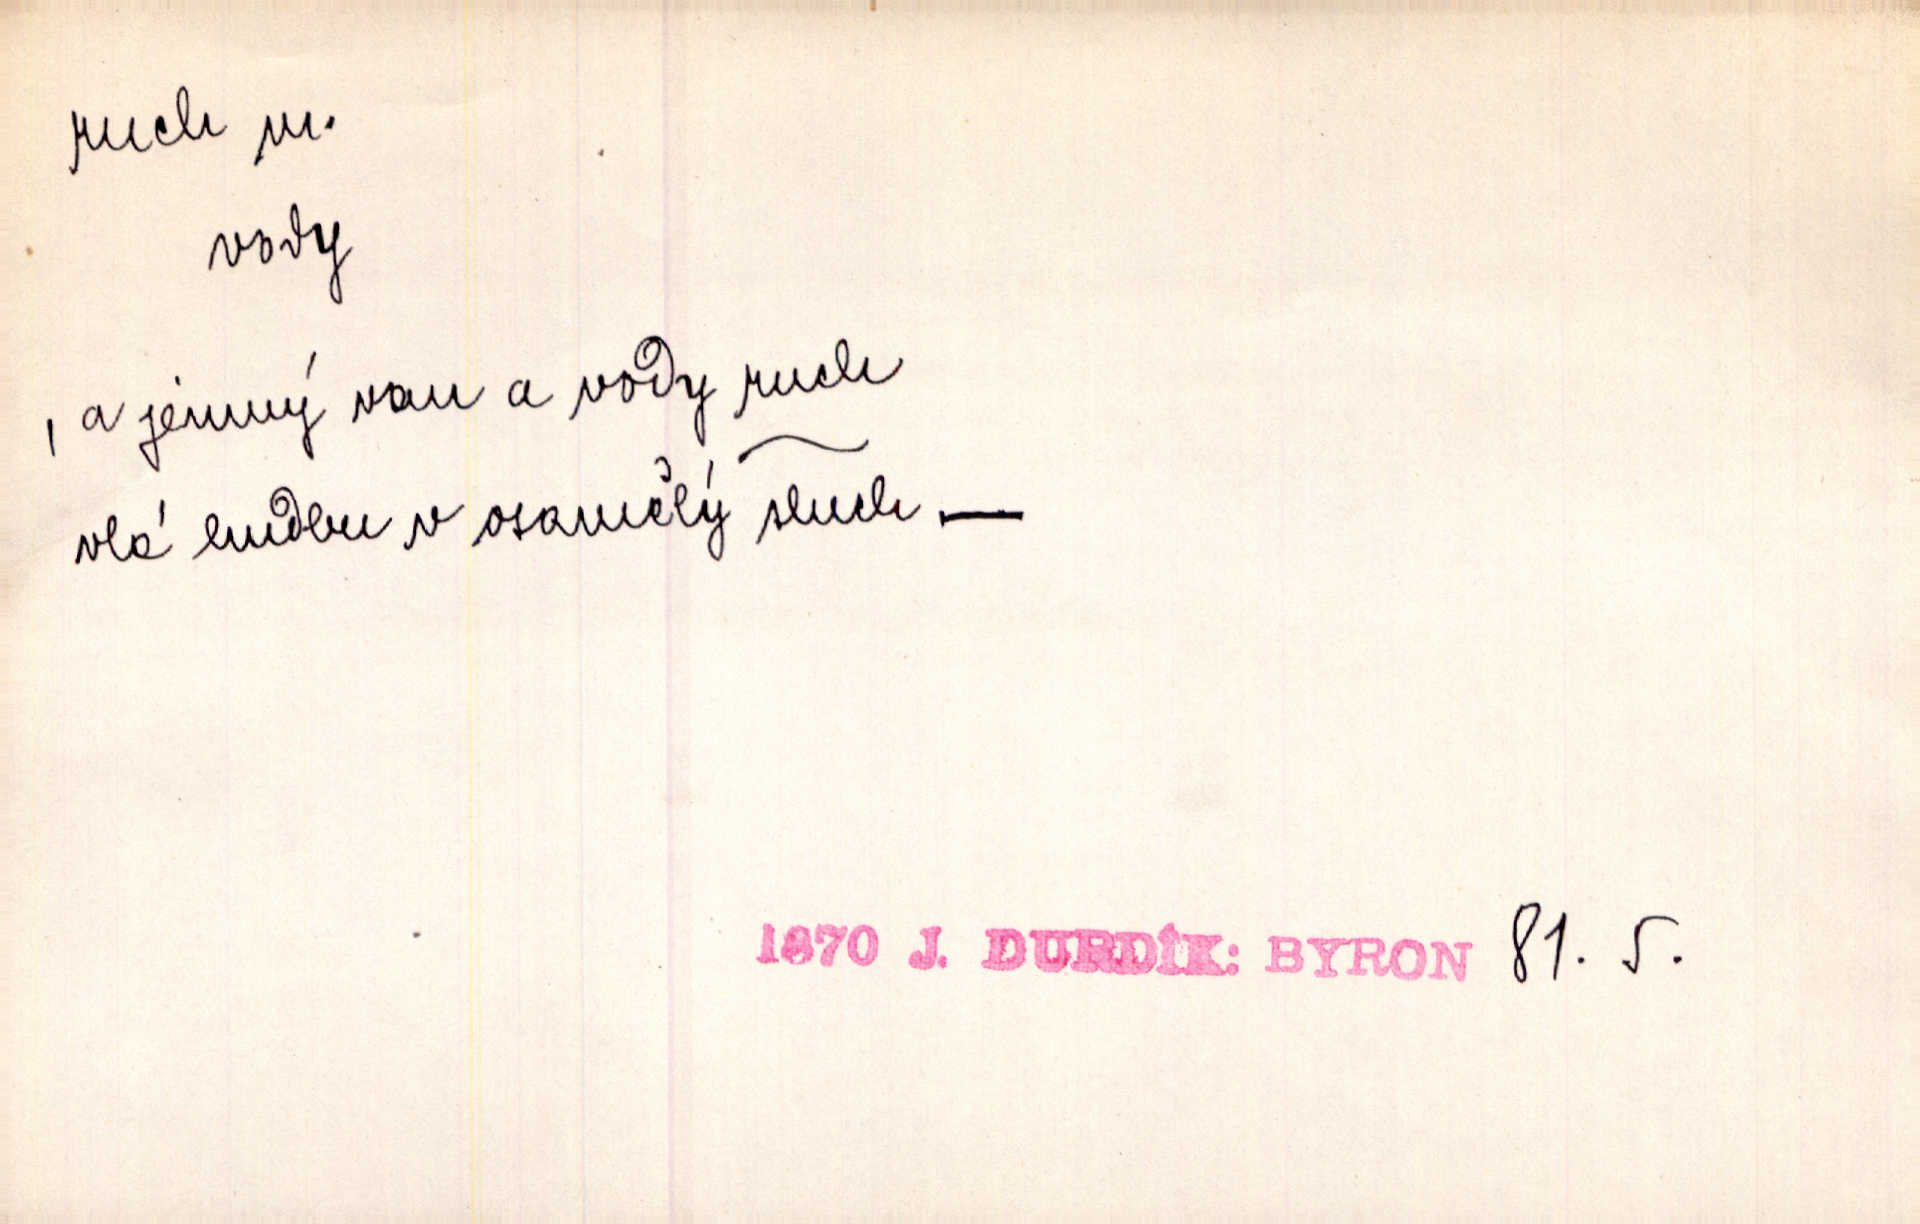 ruch m.
vody
, a jemný van a vody ruch
vlá hudbu v osamělý sluch —
1870 J. DURDÍK: BYRON 81. 5.